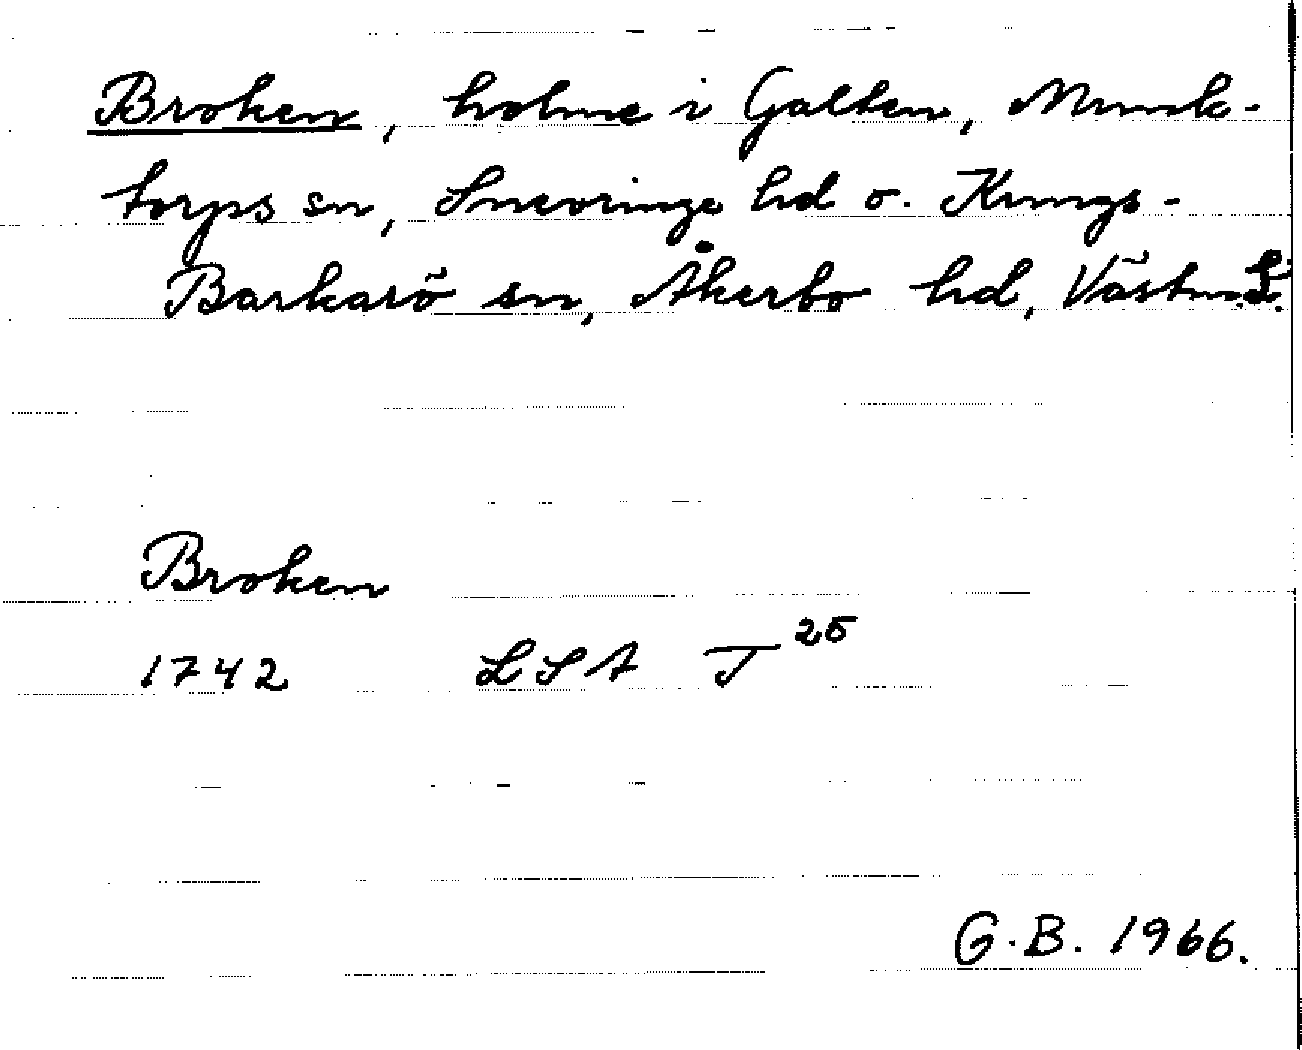 Broken, holme i Galten, Munk-
torps sn, Snevringe hd o. Kungs-
Barkarö sn, Åkerbo hd, Västm. L.
Broken
1742 LSA T 25
G.B. 1966.